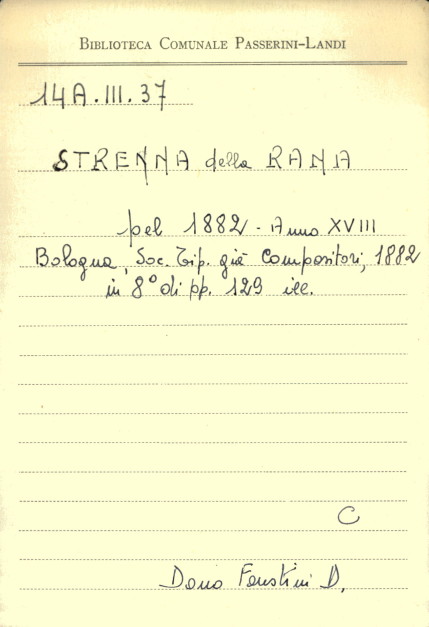 BIBLIOTECA COMUNALE PASSERINI-LANDI
14A.III.37
STRENNA della RANA
pel 1882 - Anno XVIII
Bologna, Soc. Tip. già Compositori, 1882
in 8° di pp. 129 ill.
C
Dono Faustini D.